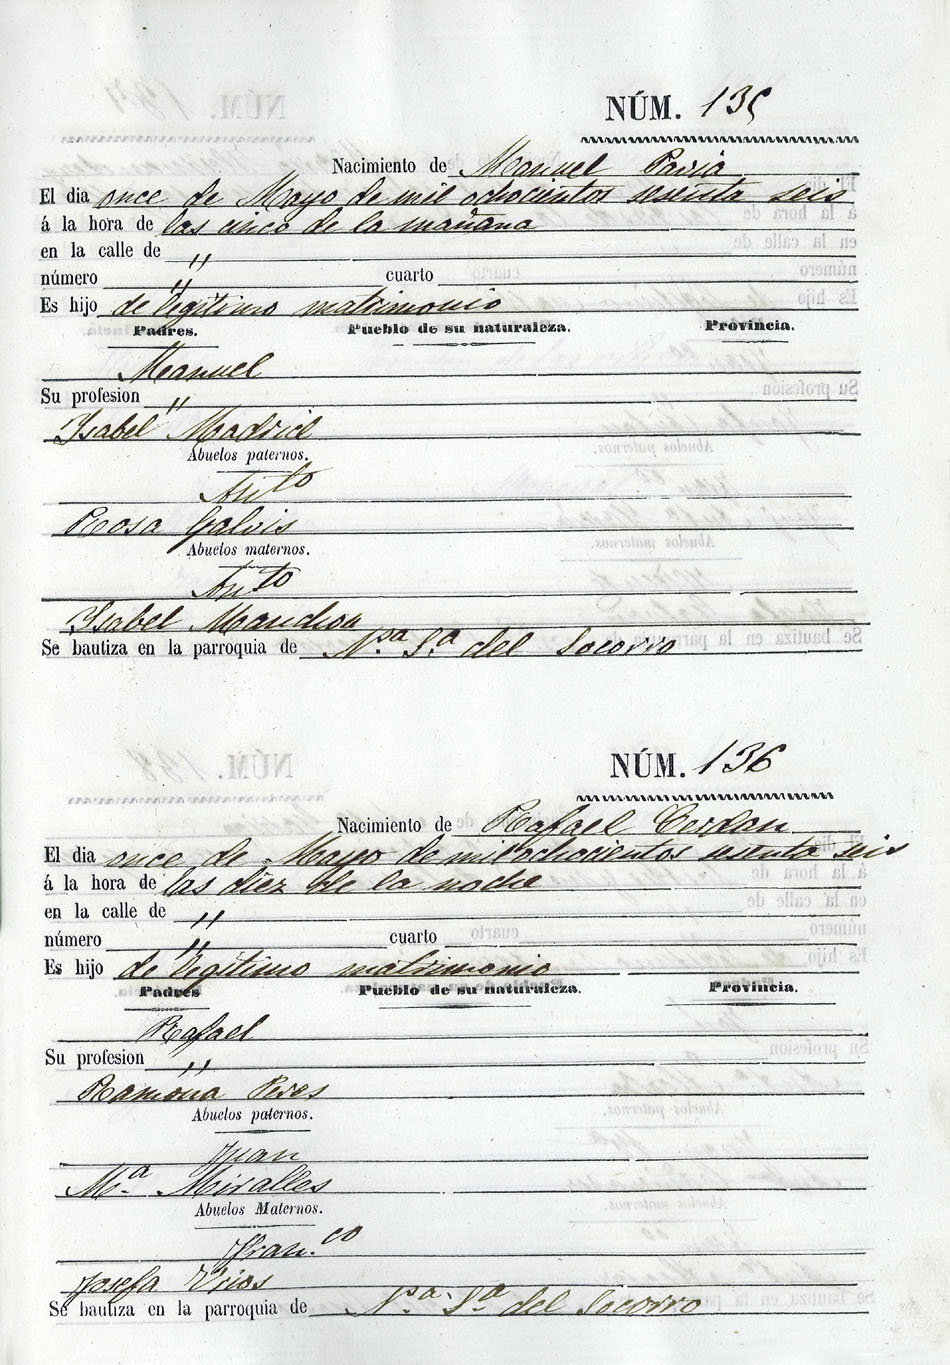 NÚM. 135
Nacimiento de Manuel Paria
El dia once de Mayo de mil ochocientos sesenta seis
á la hora de las cinco de la mañana
en la calle de "
número " cuarto
Es hijo de legitimo matrimonio
Padres. Pueblo de su naturaleza. Provincia.
Manuel
Su profesion "
Isabel Madrid
Abuelos paternos.
Ant.to
Rosa Galvis
Abuelos maternos.
Ant.to
Isabel
Se bautiza en la parroquia de N.a S.a del Socorro
NÚM. 136
Nacimiento de Rafael Cerdan
El dia once de Mayo de mil ochocientos sesenta seis
á la hora de las diez de la noche
en la calle de "
número " cuarto
Es hijo de legitimo matrimonio
Padres Pueblo de su naturaleza. Provincia.
Rafael
Su profesion "
Ramona Peres
Abuelos paternos.
Juan
M.a Miralles
Abuelos Maternos.
Fran.co
Josefa
Se bautiza en la parroquia de N.a S.a del Socorro